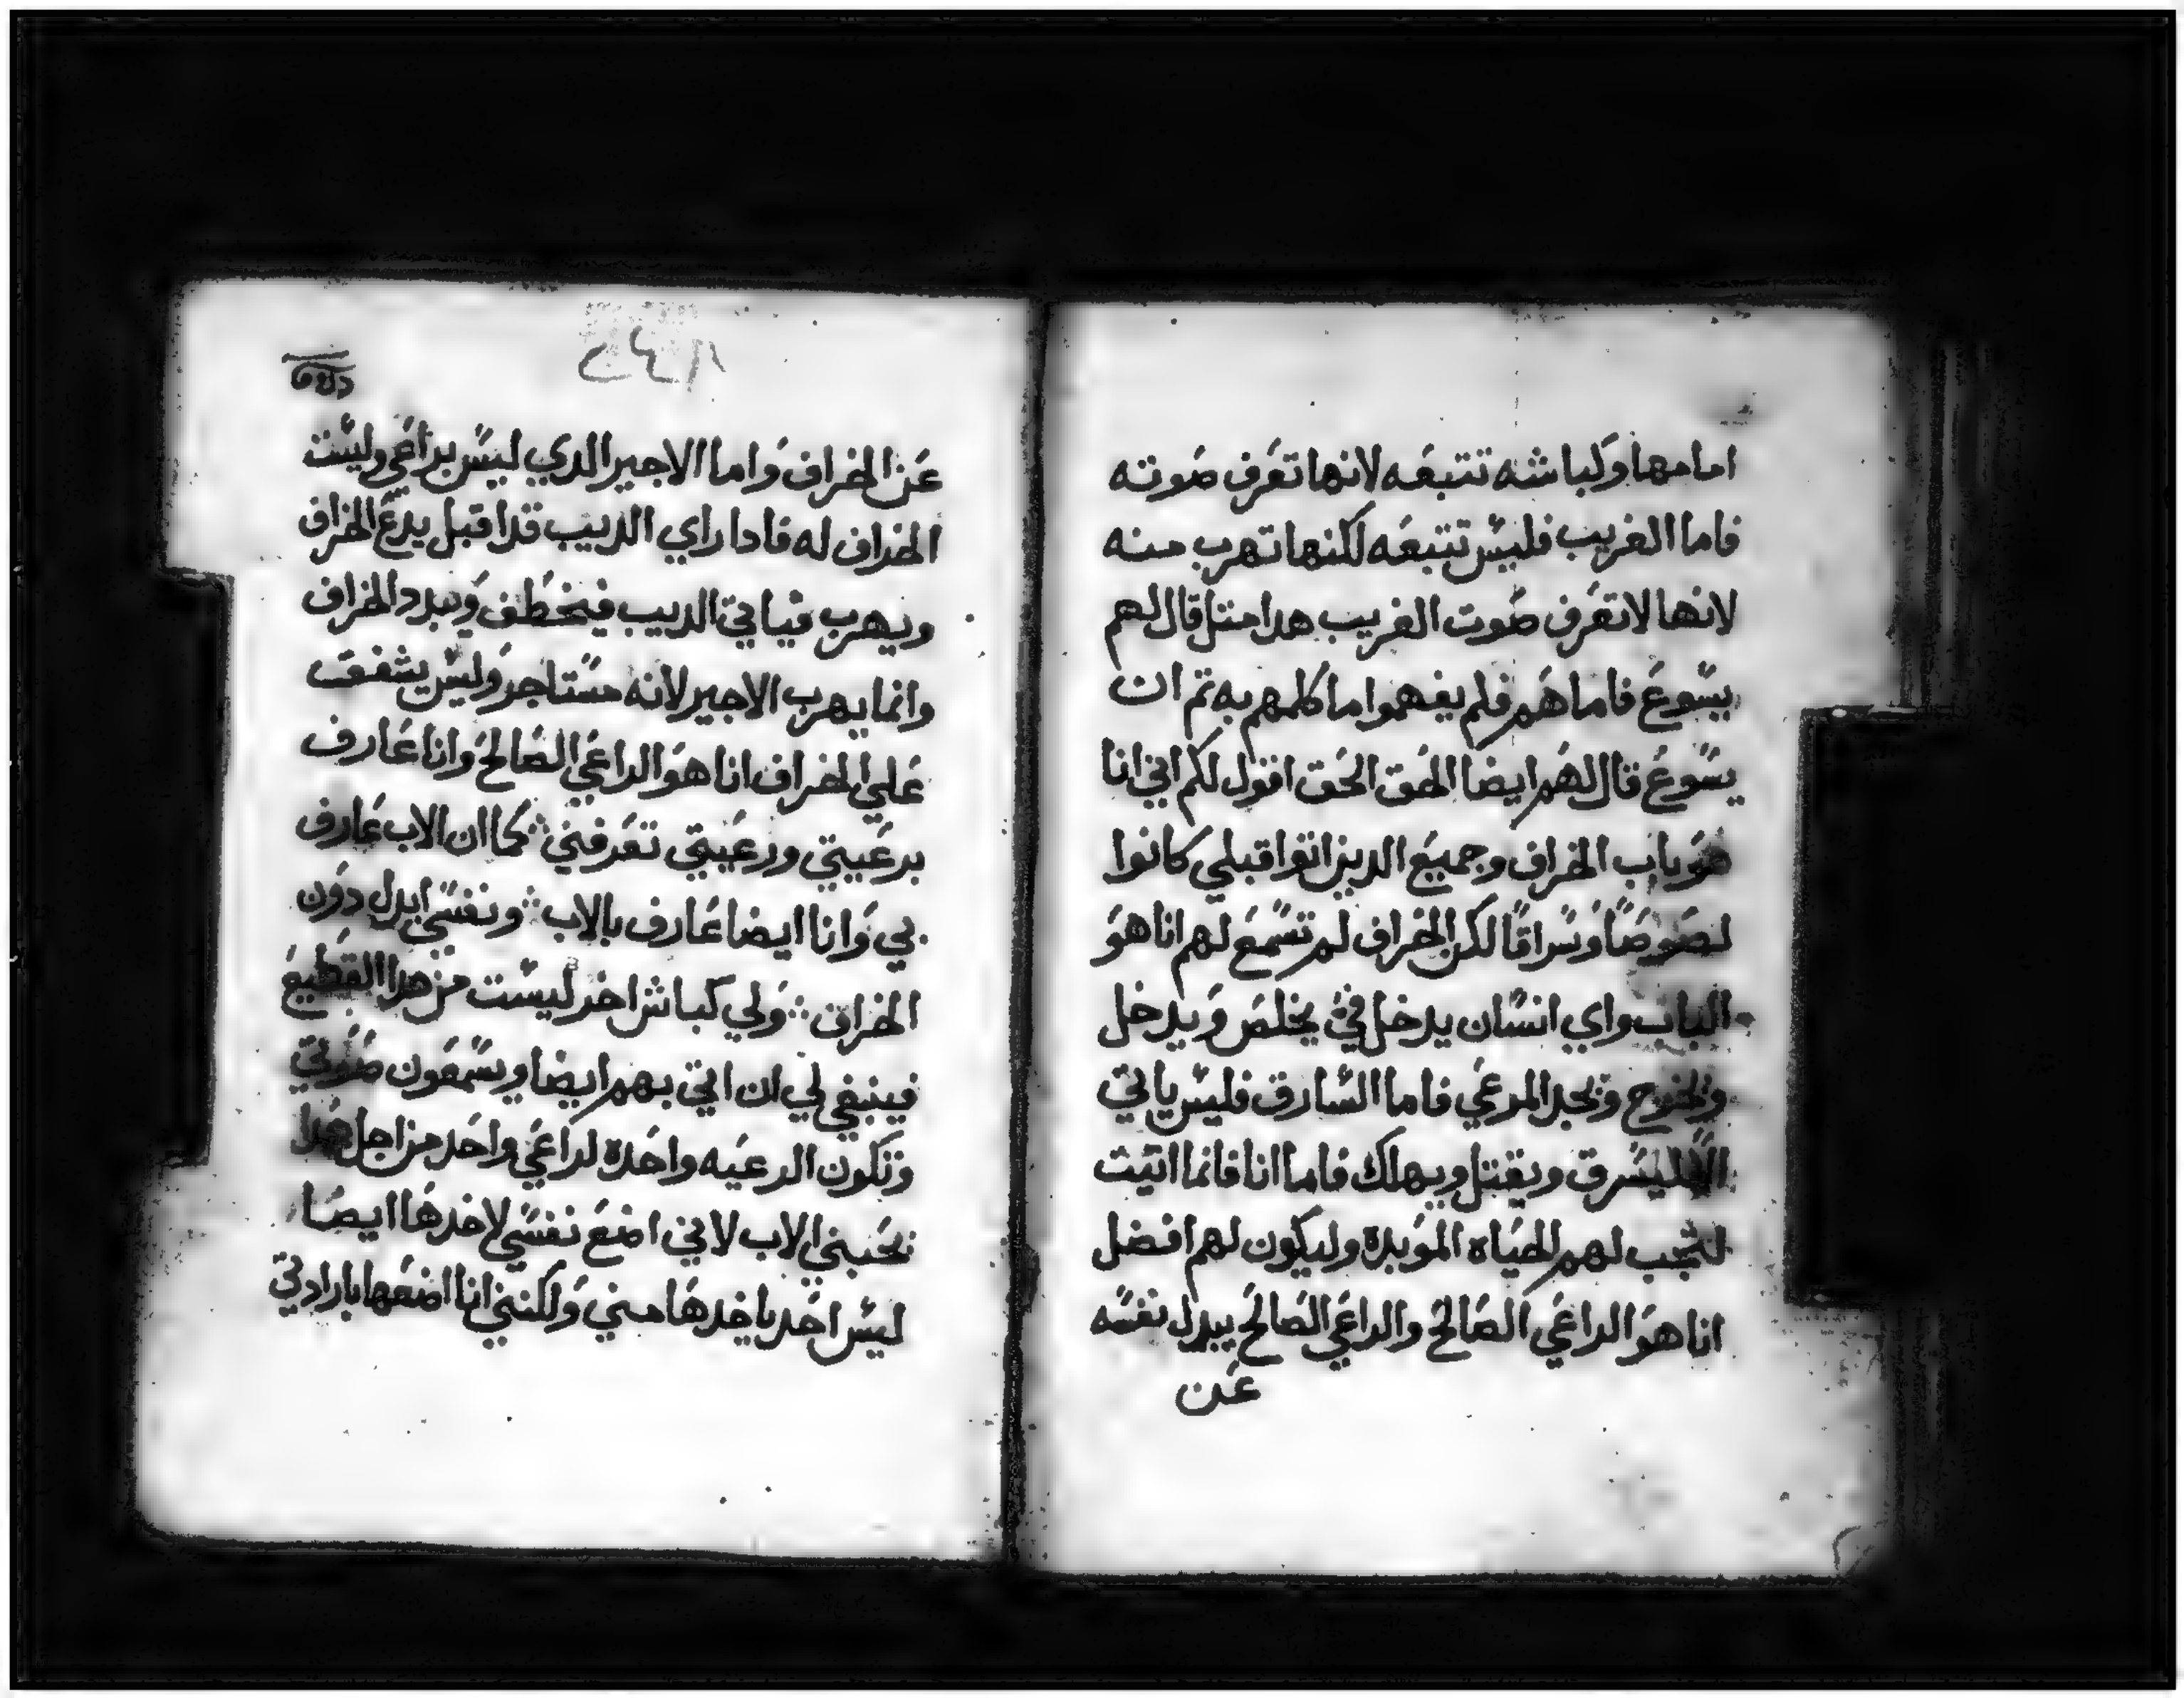 امامها وكباشه تتبعه لانها تعرف صوته
فاما الغريب فليس تتبعه لكنها تهرب منه
لانها لا تعرف صوت الغريب هدا متل قال لهم
يسوع فاما هم فلم يفهموا ما كلمهم به تم ان
يسوع قال لهم ايضا الحق الحق اقول لكم اني انا
هو باب الخراف وجميع الدين اتوا قبلي كانوا
لصوصا وسراقا لكن الخراف لم تسمع لهم انا هو
الباب واي انسان يدخل في يخلص ويدخل
ويخرج ويجد المرعي فاما السارق فليس ياتي
الا ليسرق ويقتل ويهلك فاما انا فانما اتيت
لتجب لهم الحياه الموبده وليكون لهم افضل
انا هو الراعي الصالح والراعي الصالح يبدل نفسه
عن
عن الخراف واما الاجير الدي ليس براعي وليست
الخراف له فادا راي الديب قد اقبل يدع الخراف
ويهرب فياتي الديب فيخطف ويبدد الخراف
وانما يهرب الاجير لانه مستاجر وليس يشفق
علي الخراف انا هو الراعي الصالح وانا عارف
برعيتي ورعيتي تعرفني كما ان الاب عارف
بي وانا ايضا عارف بالاب ونفسي ابدل دون
الخراف ولي كباش اخر ليست من هدا القطيع
فينبغي لي ان اتي بهم ايضا ويسمعون صوتي
وتكون الرعيه واحده لراعي واحد من اجل هدا
يحبني الاب لاني اضع نفسي لاخدها ايضا
ليس احد ياخدها مني ولكنني انا اضعها بارادتي